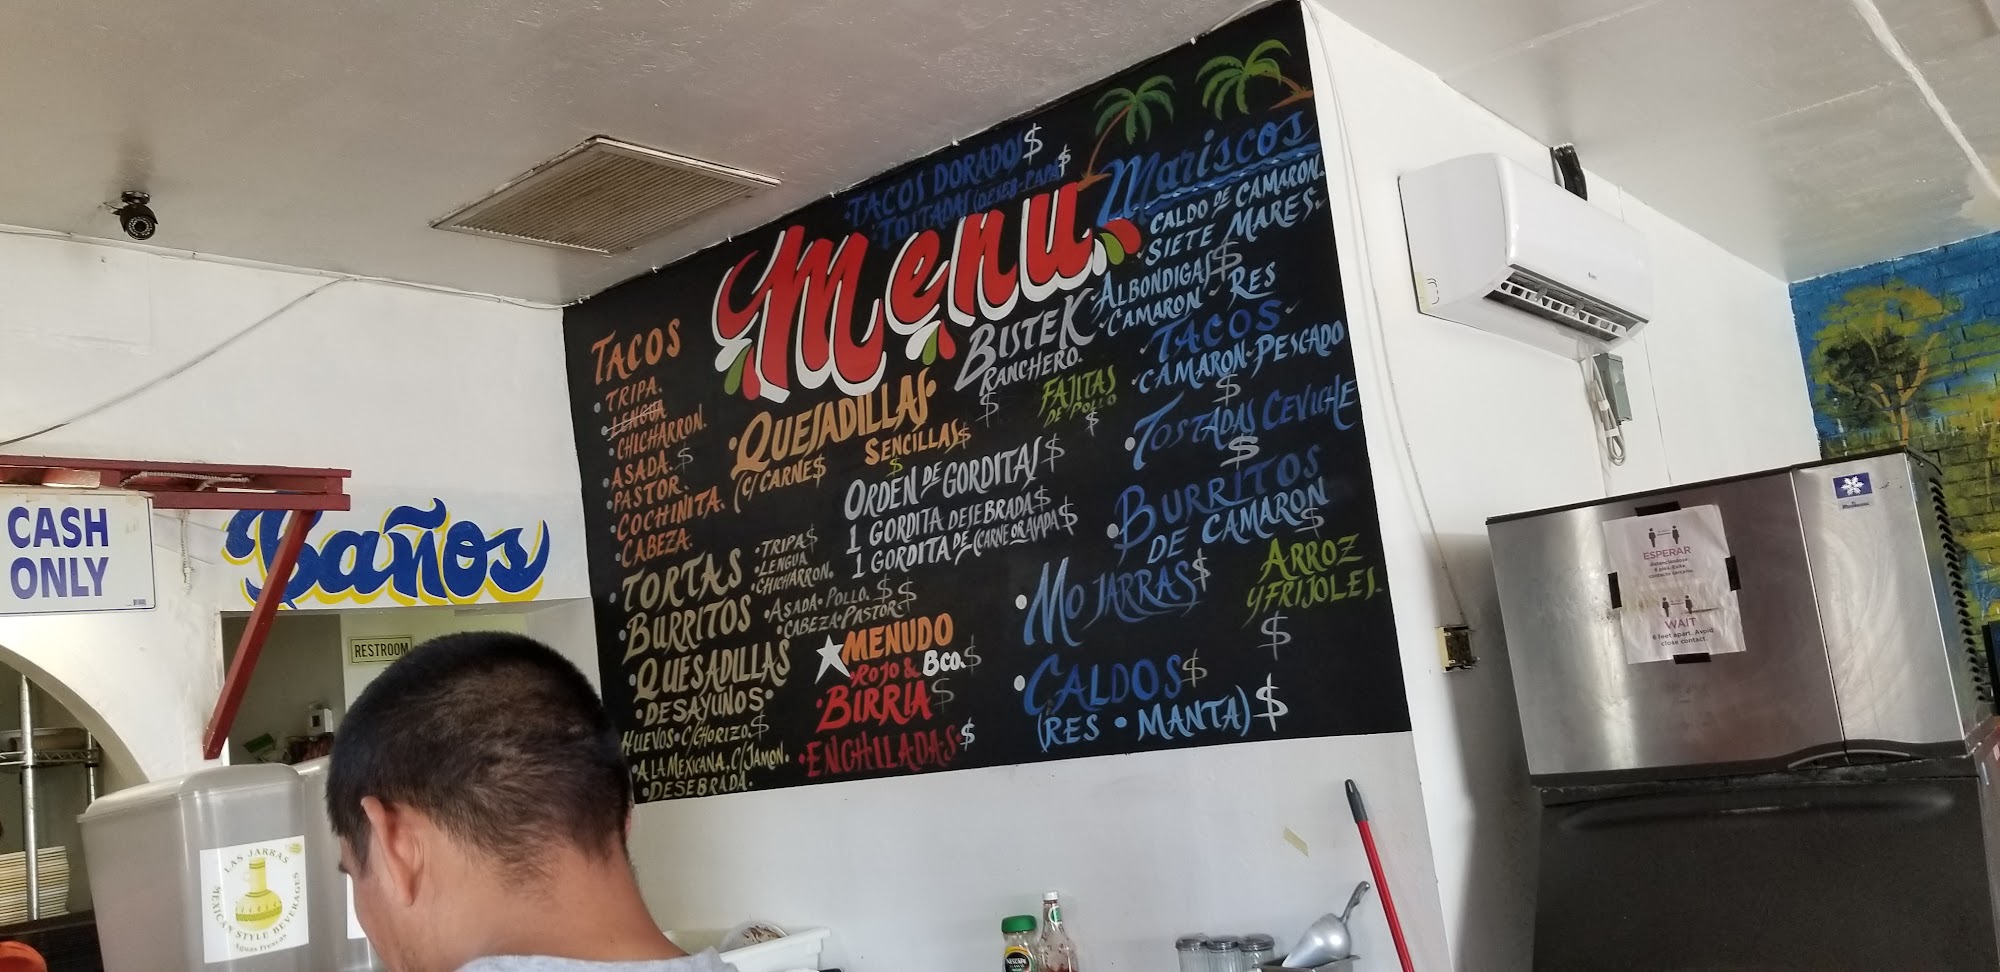 CASH
ONLY
Baños
RESTROOM
Menu
TACOS DORADOS $
TOSTADAS (DESEB-PAPA $
TACOS
TRIPA.
LENGUA
CHICHARRON.
ASADA. $
PASTOR.
COCHINITA.
CABEZA.
QUESADILLAS
(C/CARNE$
SENCILLAS $
$
BISTEK
RANCHERO.
$
FAJITAS
DE POLLO
$
ORDEN DE GORDITAS $
1 GORDITA DESEBRADA $
1 GORDITA DE (CARNE OR AVADA $
TORTAS
BURRITOS
QUESADILLAS
TRIPA $
LENGUA
CHICHARRON.
ASADA • POLLO. $ $
CABEZA • PASTOR
DESAYUNOS
HUEVOS • C/CHORIZO. $
• A LA MEXICANA, C/JAMON.
• DESEBRADA.
MENUDO
• ROJO & BCO. $
BIRRIA $
• ENCHILADAS • $
Mariscos
CALDO DE CAMARON.
SIETE MARES.
ALBONDIGAS $
CAMARON RES
TACOS
CAMARON PESCADO
$
TOSTADAS CEVICHE
$
BURRITOS
DE CAMARON
$
MOJARRAS $
ARROZ
Y FRIJOLES.
$
CALDOS $
(RES • MANTA) $
ESPERAR
WAIT
6 feet apart. Avoid
close contact.
LAS JARRAS
MEXICAN STYLE BEVERAGES
Aguas frescas
NESCAFE